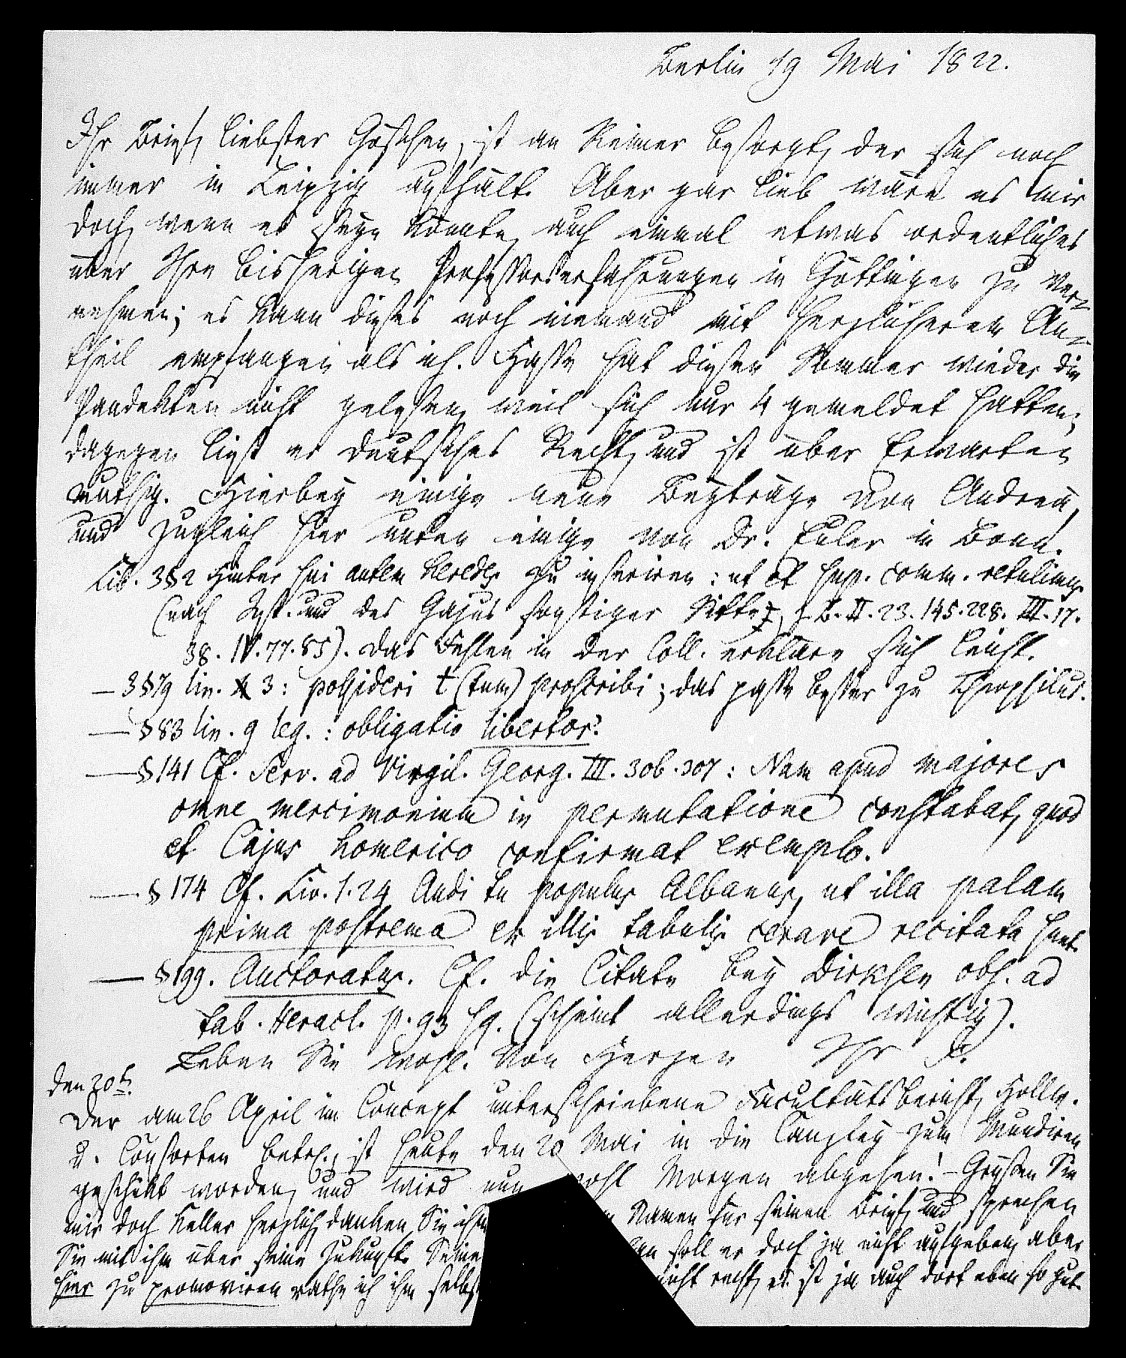 Berlin 19 Mai 1822.
Ihr Brief, liebster Göschen, ist an Reimer besorgt, der sich noch
immer in Leipzig aufhält. Aber gar lieb wäre es mir
doch, wenn es seyn könnte, auch einmal etwas ordentliches
über Ihre bisherigen Professorserfahrungen in Göttingen zu ver-
nehmen; es kann dieses noch niemand mit herzlicherem An-
theil empfangen als ich. Hasse hat diesen Sommer wieder die
Pandekten nicht gelesen, weil sich nur 4 gemeldet hatten;
dagegen liest er deutsches Recht, und ist über Erwarten
muthig. Hierbey einige neue Beyträge von Andreä,
und zugleich hier unten einige von Dr. Euler in Bonn.
Lib. 3 § 2 hinter sui autem heredes zu inseriren: ut et sup. comm. retulimus
(nach Inst. und des Gajus sonstiger Sitte, f. L. II. 23. 145. 228. III. 17.
38. IV. 77. 85). Das Fehlen in der Coll. erkläre sich leicht.
— 3 § 79 lin. 3: possideri t (tum) proscribi; das passe besser zu Theophilus.
— § 83 lin. 9 leg.: obligatio libertor.
— § 141 Cf. Serv. ad Virgil. Georg. III. 306. 307: Nam apud majores
omne mercimonium in permutatione constabat, quod
et Cajus homerico confirmat exemplo.
— § 174 Cf. Liv. 1. 24 Audi tu populus Albanus, ut illa palam
prima postrema ex illis tabulis cerave recitata sunt
— § 199. Auctoratus. Cf. die Citate bey Dirksen obs. ad
tab. Heracl. p. 93 sq. (scheint allerdings wichtig).
Leben Sie wohl. Von Herzen Ihr S.
den 20t.
Der am 26 April im Concept unterschriebene Facultätsbericht, Hollw.
u. Consorten betr., ist heute den 20 Mai in die Canzley zum Mundiren
geschickt worden, und wird nun wohl Morgen abgehen! — Grüßen Sie
mir doch Keller herzlich, danken Sie ihm Namen für seinen Brief, und sprechen
Sie mit ihm über seine Zukunft. Seine soll er doch ja nicht aufgeben, aber
hier zu promoviren rathe ich ihm selbst nicht recht, es ist ja auch dort eben so gut